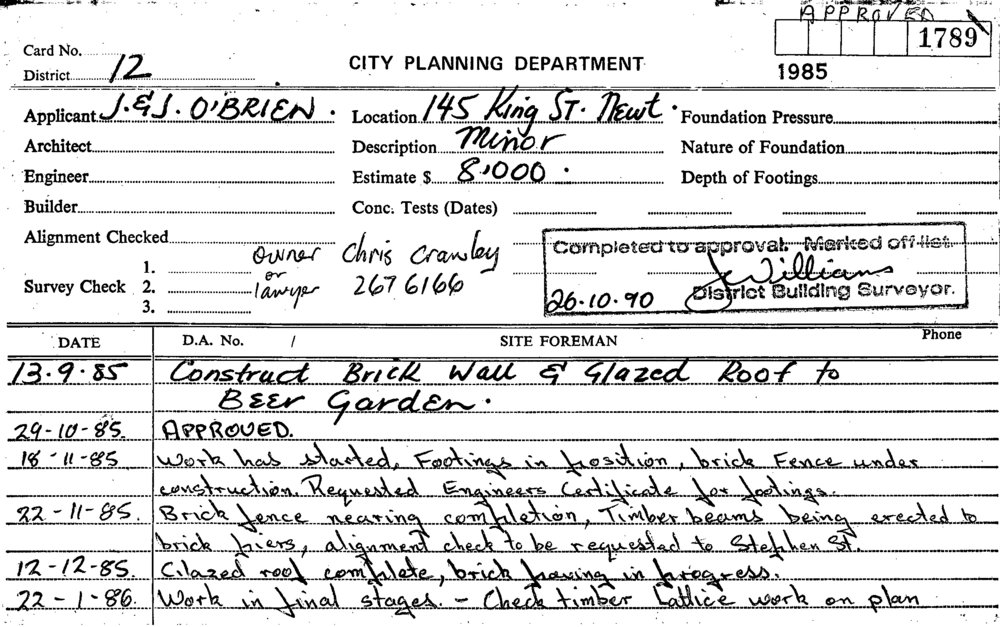 APPROVED
1789
Card No.
District 12
CITY PLANNING DEPARTMENT
1985
Applicant J. & J. O'BRIEN. Location 145 King ST. Newt. Foundation Pressure
Architect Description Minor Nature of Foundation
Engineer Estimate $ 8,000. Depth of Footings
Builder Conc. Tests (Dates)
Alignment Checked
Survey Check 1. 2. 3.
owner or lawyer
Chris Crawley
267 6166
Completed to approval. Marked off list.
J Williams
26.10.90 District Building Surveyor.
DATE D.A. No. / SITE FOREMAN Phone
13.9.85 Construct Brick Wall & Glazed Roof to
Beer Garden.
29-10-85. APPROVED.
18-11-85 Work has started, Footings in position, brick Fence under
construction. Requested Engineers Certificate for footings.
22-11-85. Brick fence nearing completion, Timber beams being erected to
brick piers, alignment check to be requested to Stephen St.
12-12-85. Glazed roof complete, brick paving in progress.
22-1-86. Work in final stages. - Check timber Lattice work on plan